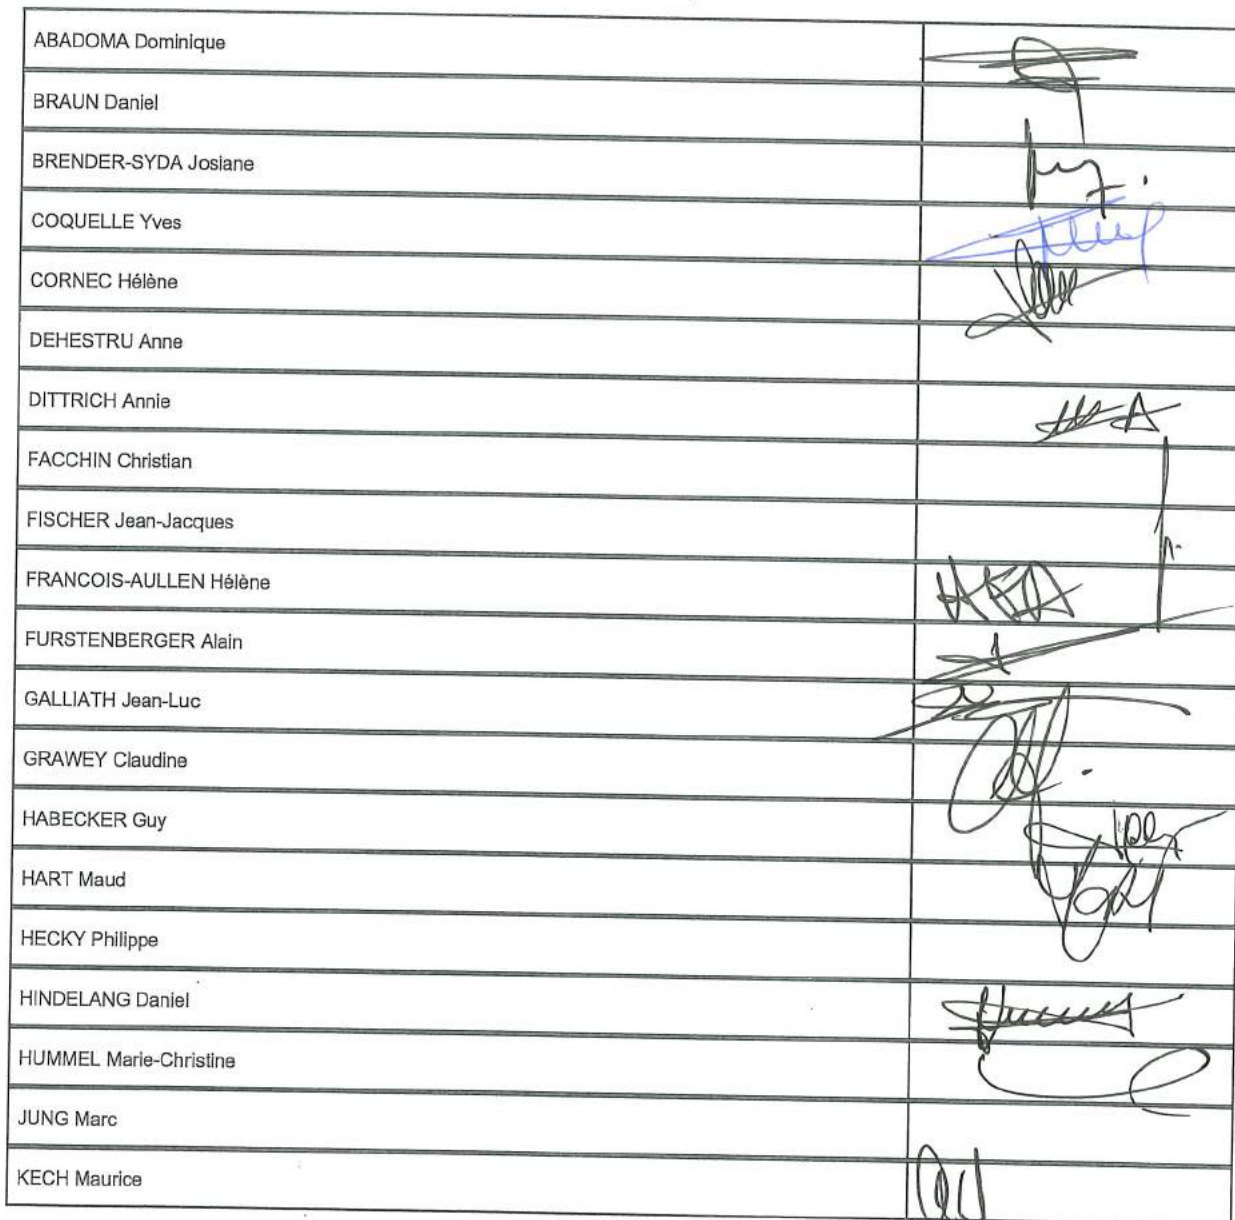 ABADOMA Dominique
BRAUN Daniel
BRENDER-SYDA Josiane
COQUELLE Yves
CORNEC Hélène
DEHESTRU Anne
DITTRICH Annie
FACCHIN Christian
FISCHER Jean-Jacques
FRANCOIS-AULLEN Hélène
FURSTENBERGER Alain
GALLIATH Jean-Luc
GRAWEY Claudine
HABECKER Guy
HART Maud
HECKY Philippe
HINDELANG Daniel
HUMMEL Marie-Christine
JUNG Marc
KECH Maurice